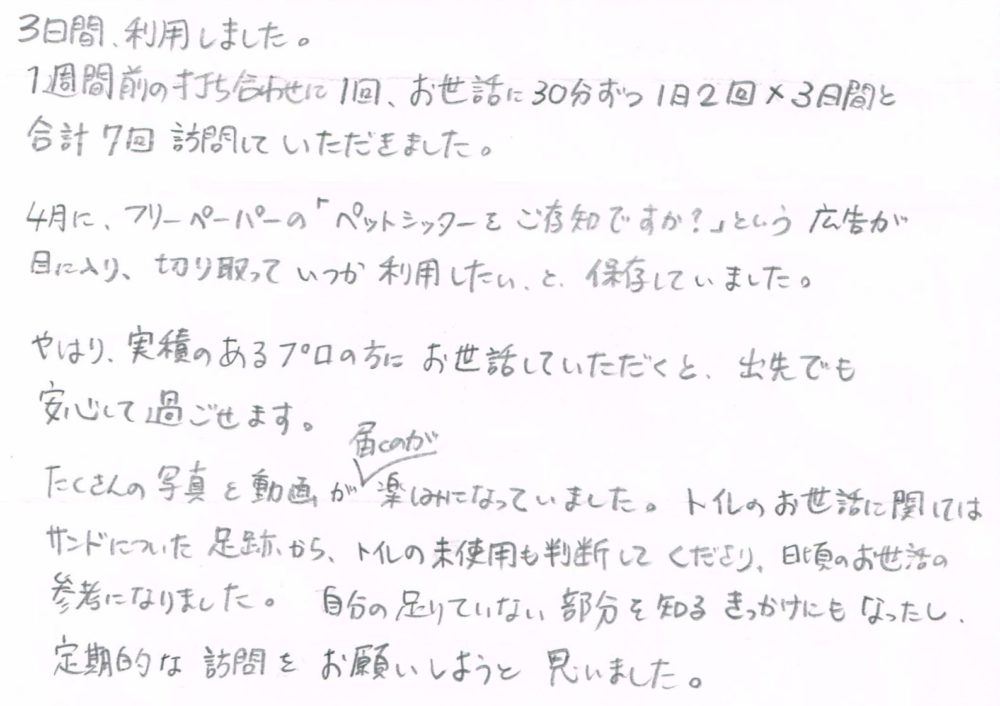 3日間、利用しました。
1週間前の打ち合わせに1回、お世話に30分ずつ1日2回×3日間と
合計7回訪問していただきました。
4月に、フリーペーパーの「ペットシッターをご存知ですか？」という広告が
目に入り、切り取っていつか利用したい、と、保存していました。
やはり、実積のあるプロの方にお世話していただくと、出先でも
安心して過ごせます。
届くのが
たくさんの写真と動画が楽しみになっていました。トイレのお世話に関しては
サンドについた足跡から、トイレの未使用も判断してくださり、日頃のお世話の
参考になりました。自分の足りていない部分を知るきっかけにもなったし、
定期的な訪問をお願いしようと思いました。